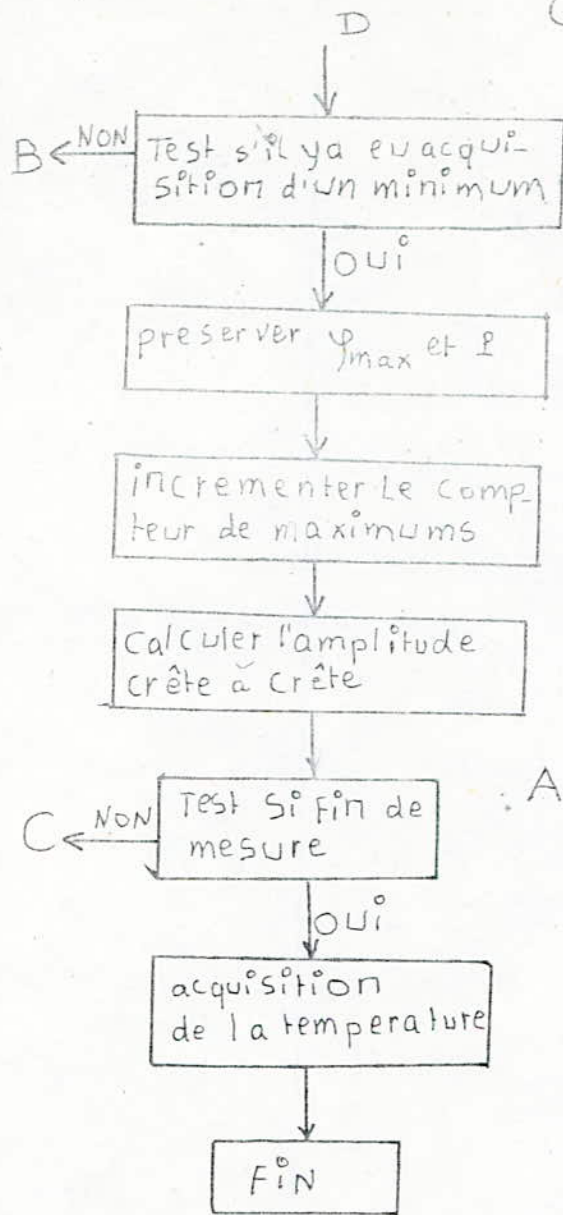 D
B NON Test s'il ya eu acqui-
sition d'un minimum
OUI
preserver φmax et
incrementer Le comp-
teur de maximums
Calculer l'amplitude
crête à crête
A
C NON Test Si Fin de
mesure
OUI
acquisition
de la temperature
FIN